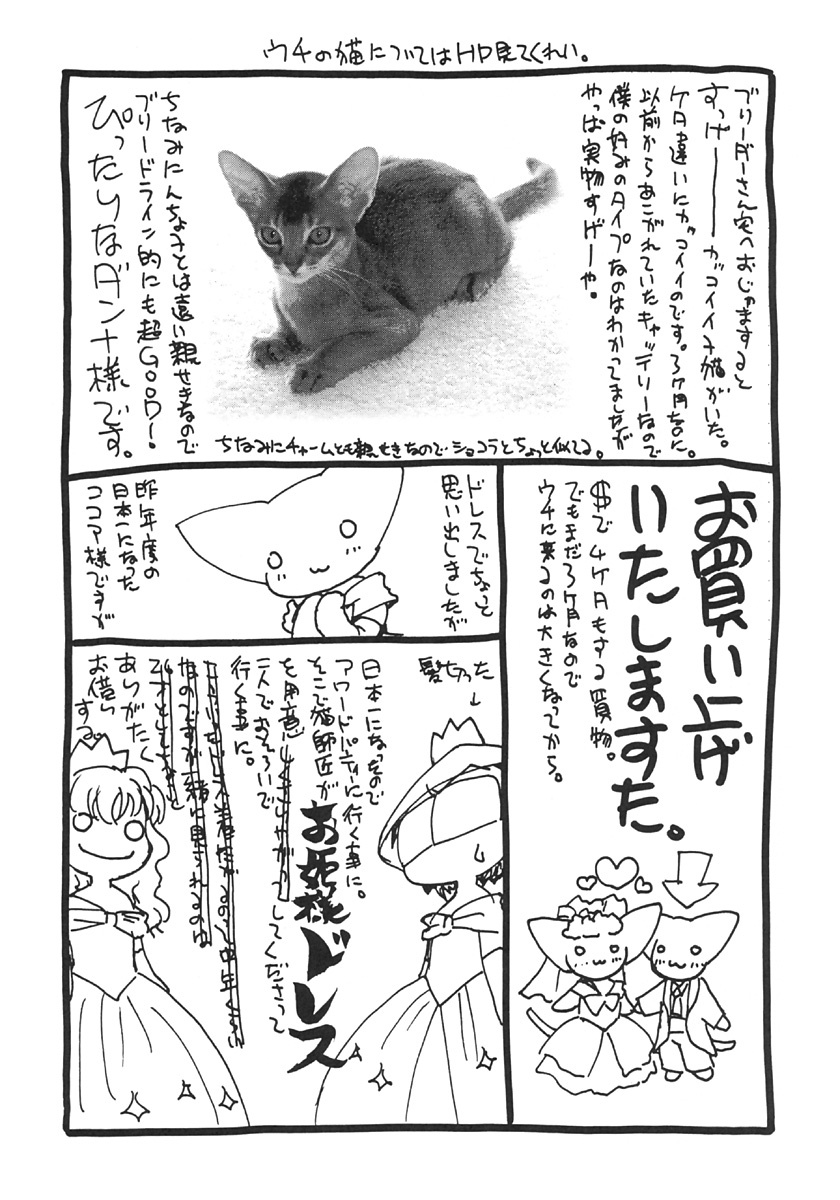 ウチの猫についてはHP見てくれい。
ブリーダーさん宅へおじゃますると
すっげーーーガッコイイ子猫がいた。
ケタ違いにガッコイイのです。3ヶ月なのに。
以前からあこがれていたキャッテリーなので
僕の好みのタイプなのはわかってましたが
やっぱ実物すげーや。
ちなみにんちょぎとは遠い親せきなので
ブリードライン的にも超GOOD!
ぴったりなダンナ様です。
ちなみにチャームとも親せきなのでショコラとちょっと似てる。
お買い上げ
いたしますた。
$で4ケタもする買物。
でもまだ3ヶ月なので
ウチに来るのは大きくなってから。
ドレスでちょっと
思い出しましたが
昨年度の
日本一になった
ココア様ですが
髪切った
日本一になったので
アワードパーティに行く事に。
そこで猫師匠が
お姫様ドレス
を用意しくさりやがってしてくださって
二人でおそろいで
行く事に。
なのですが一緒に
ありがたく
お借り
する。